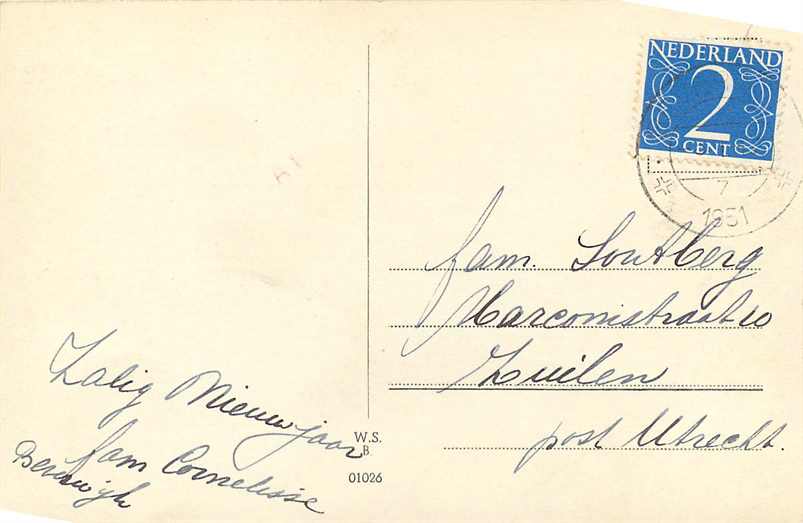 Zalig Nieuwjaar
fam Cornelisse
Beverwijk
W.S.
B
01026
NEDERLAND
2
CENT
7
1951
fam. Soutberg
Marconistraat 10
Zuilen
post Utrecht.